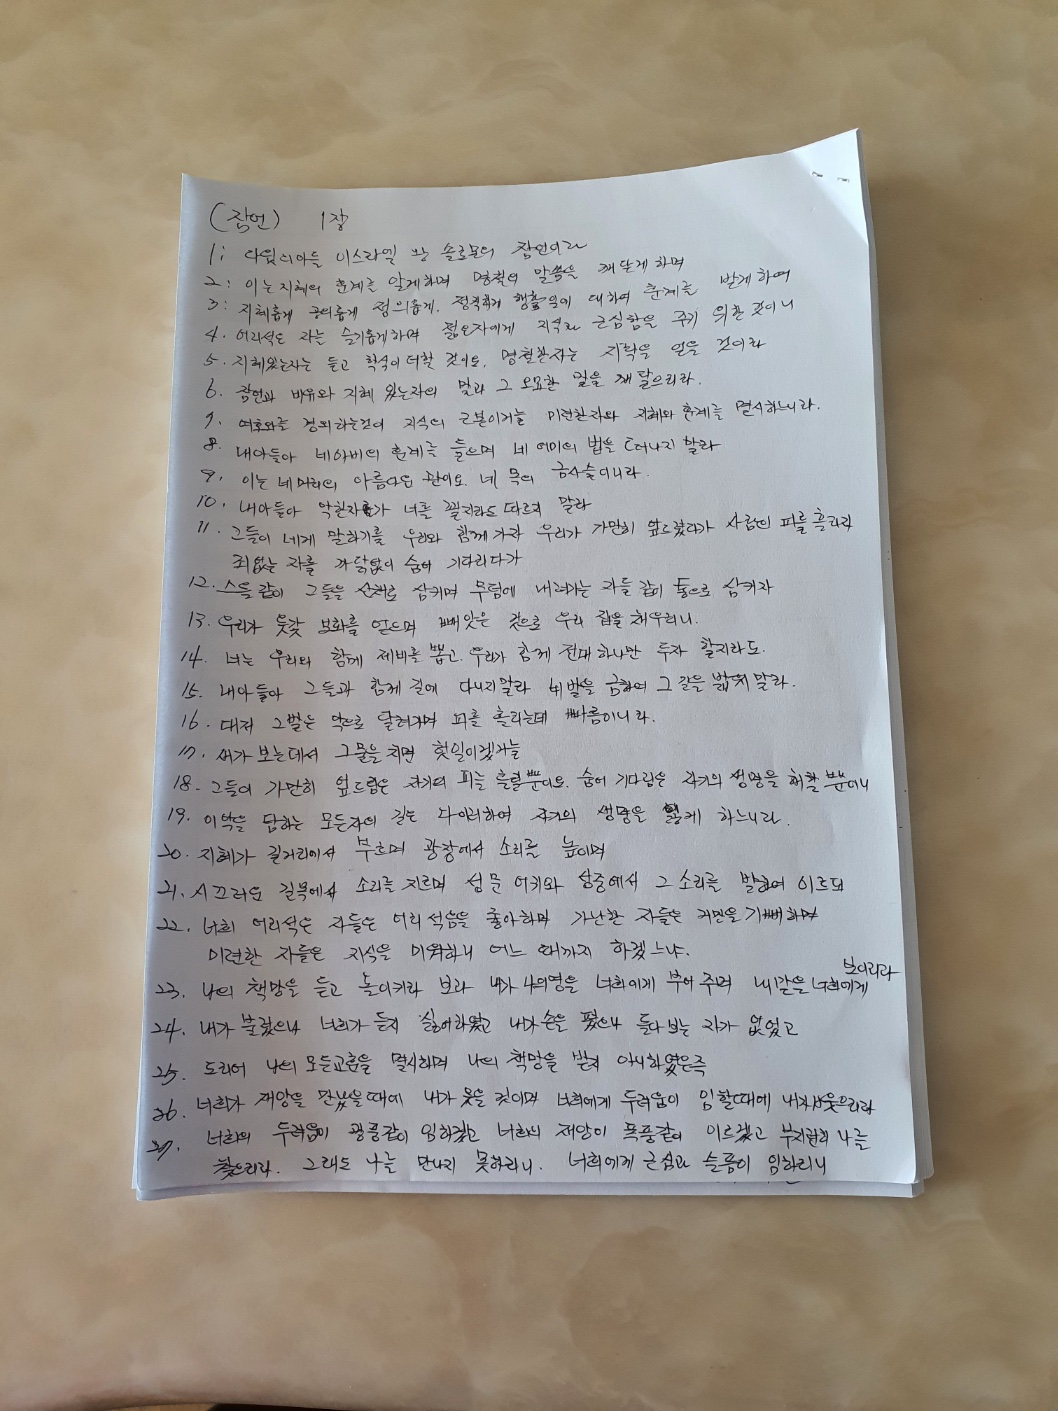 (잠언) 1장
1: 다윗의아들 이스라엘 왕 솔로몬의 잠언이라
2: 이는지혜와 훈계를 알게하며 명철의 말씀을 깨닫게 하며
3: 지혜롭게 공의롭게 정의롭게. 정직하게 행할 일에 대하여 훈계를 받게 하여
4. 어리석은 자는 슬기롭게하며 젊은자에게 지식과 근심함을 주기 위한 것이니
5. 지혜있는자는 듣고 학식이더할 것이요. 명철한자는 지략을 얻을 것이라
6. 잠언과 비유와 지혜 있는자의 말과 그 오묘한 말을 깨달으리라.
7. 여호와를 경외하는것이 지식의 근본이거늘 미련한자와 지혜와훈계를 멸시하느니라.
8. 내아들아 네아비의 훈계를 들으며 네 어미의 법을 떠나지 말라
9. 이는 네머리의 아름다운 관이요. 네 목의 금사슬이니라.
10. 내아들아 악한자가 너를 꾈지라도 따르지 말라
11. 그들이 네게 말하기를 우리와 함께 가자 우리가 가만히 엎드렸다가 사람의 피를 흘리자
죄없는 자를 까닭없이 숨어 기다리다가
12. 스올같이 그들을 산채로 삼키며 무덤에 내려가는 자들 같이 통으로 삼키자
13. 우리가 온갖 보화를 얻으며 빼앗은 것으로 우리 집을 채우리니.
14. 너는 우리와 함께 제비를 뽑고. 우리가 함께 전대 하나만 두자 할지라도.
15. 내아들아 그들과 함께 길에 다니지말라 네 발을 금하여 그 길을 밟지 말라.
16. 대저 그발은 악으로 달려가며 피를 흘리는데 빠름이니라.
17. 새가 보는데서 그물을 치면 헛일이겠거늘
18. 그들이 가만히 엎드림은 자기의 피를 흘릴뿐이요. 숨어 기다림은 자기의 생명을 해할 뿐이니
19. 이익을 탐하는 모든자의 길은 다이러하여 자기의 생명을 잃게 하느니라.
20. 지혜가 길거리에서 부르며 광장에서 소리를 높이며
21. 시끄러운 길목에서 소리를 지르며 성문 어귀와 성중에서 그 소리를 발하여 이르되
22. 너희 어리석은 자들은 어리석음을 좋아하며 가난한 자들은 거만을 기뻐하며
미련한 자들은 지식을 미워하니 어느 때까지 하겠느냐.
23. 나의 책망을 듣고 돌이키라 보라 내가 나의영을 너희에게 부어 주며 내말을 너희에게 보이리라
24. 내가 불렀으나 너희가 듣지 싫어하였고 내가손을 폈으나 돌아보는 자가 없었고
25. 도리어 나의 모든교훈을 멸시하며 나의 책망을 받지 아니하였은즉
26. 너희가 재앙을 만났을때에 내가 웃을 것이며 너희에게 두려움이 임할때에 내가비웃으리라
27. 너희의 두려움이 광풍같이 임하겠고 너희의 재앙이 폭풍같이 이르겠고 부지런히 나를
찾으리라. 그래도 나를 만나지 못하리니. 너희에게 근심과 슬픔이 임하리니